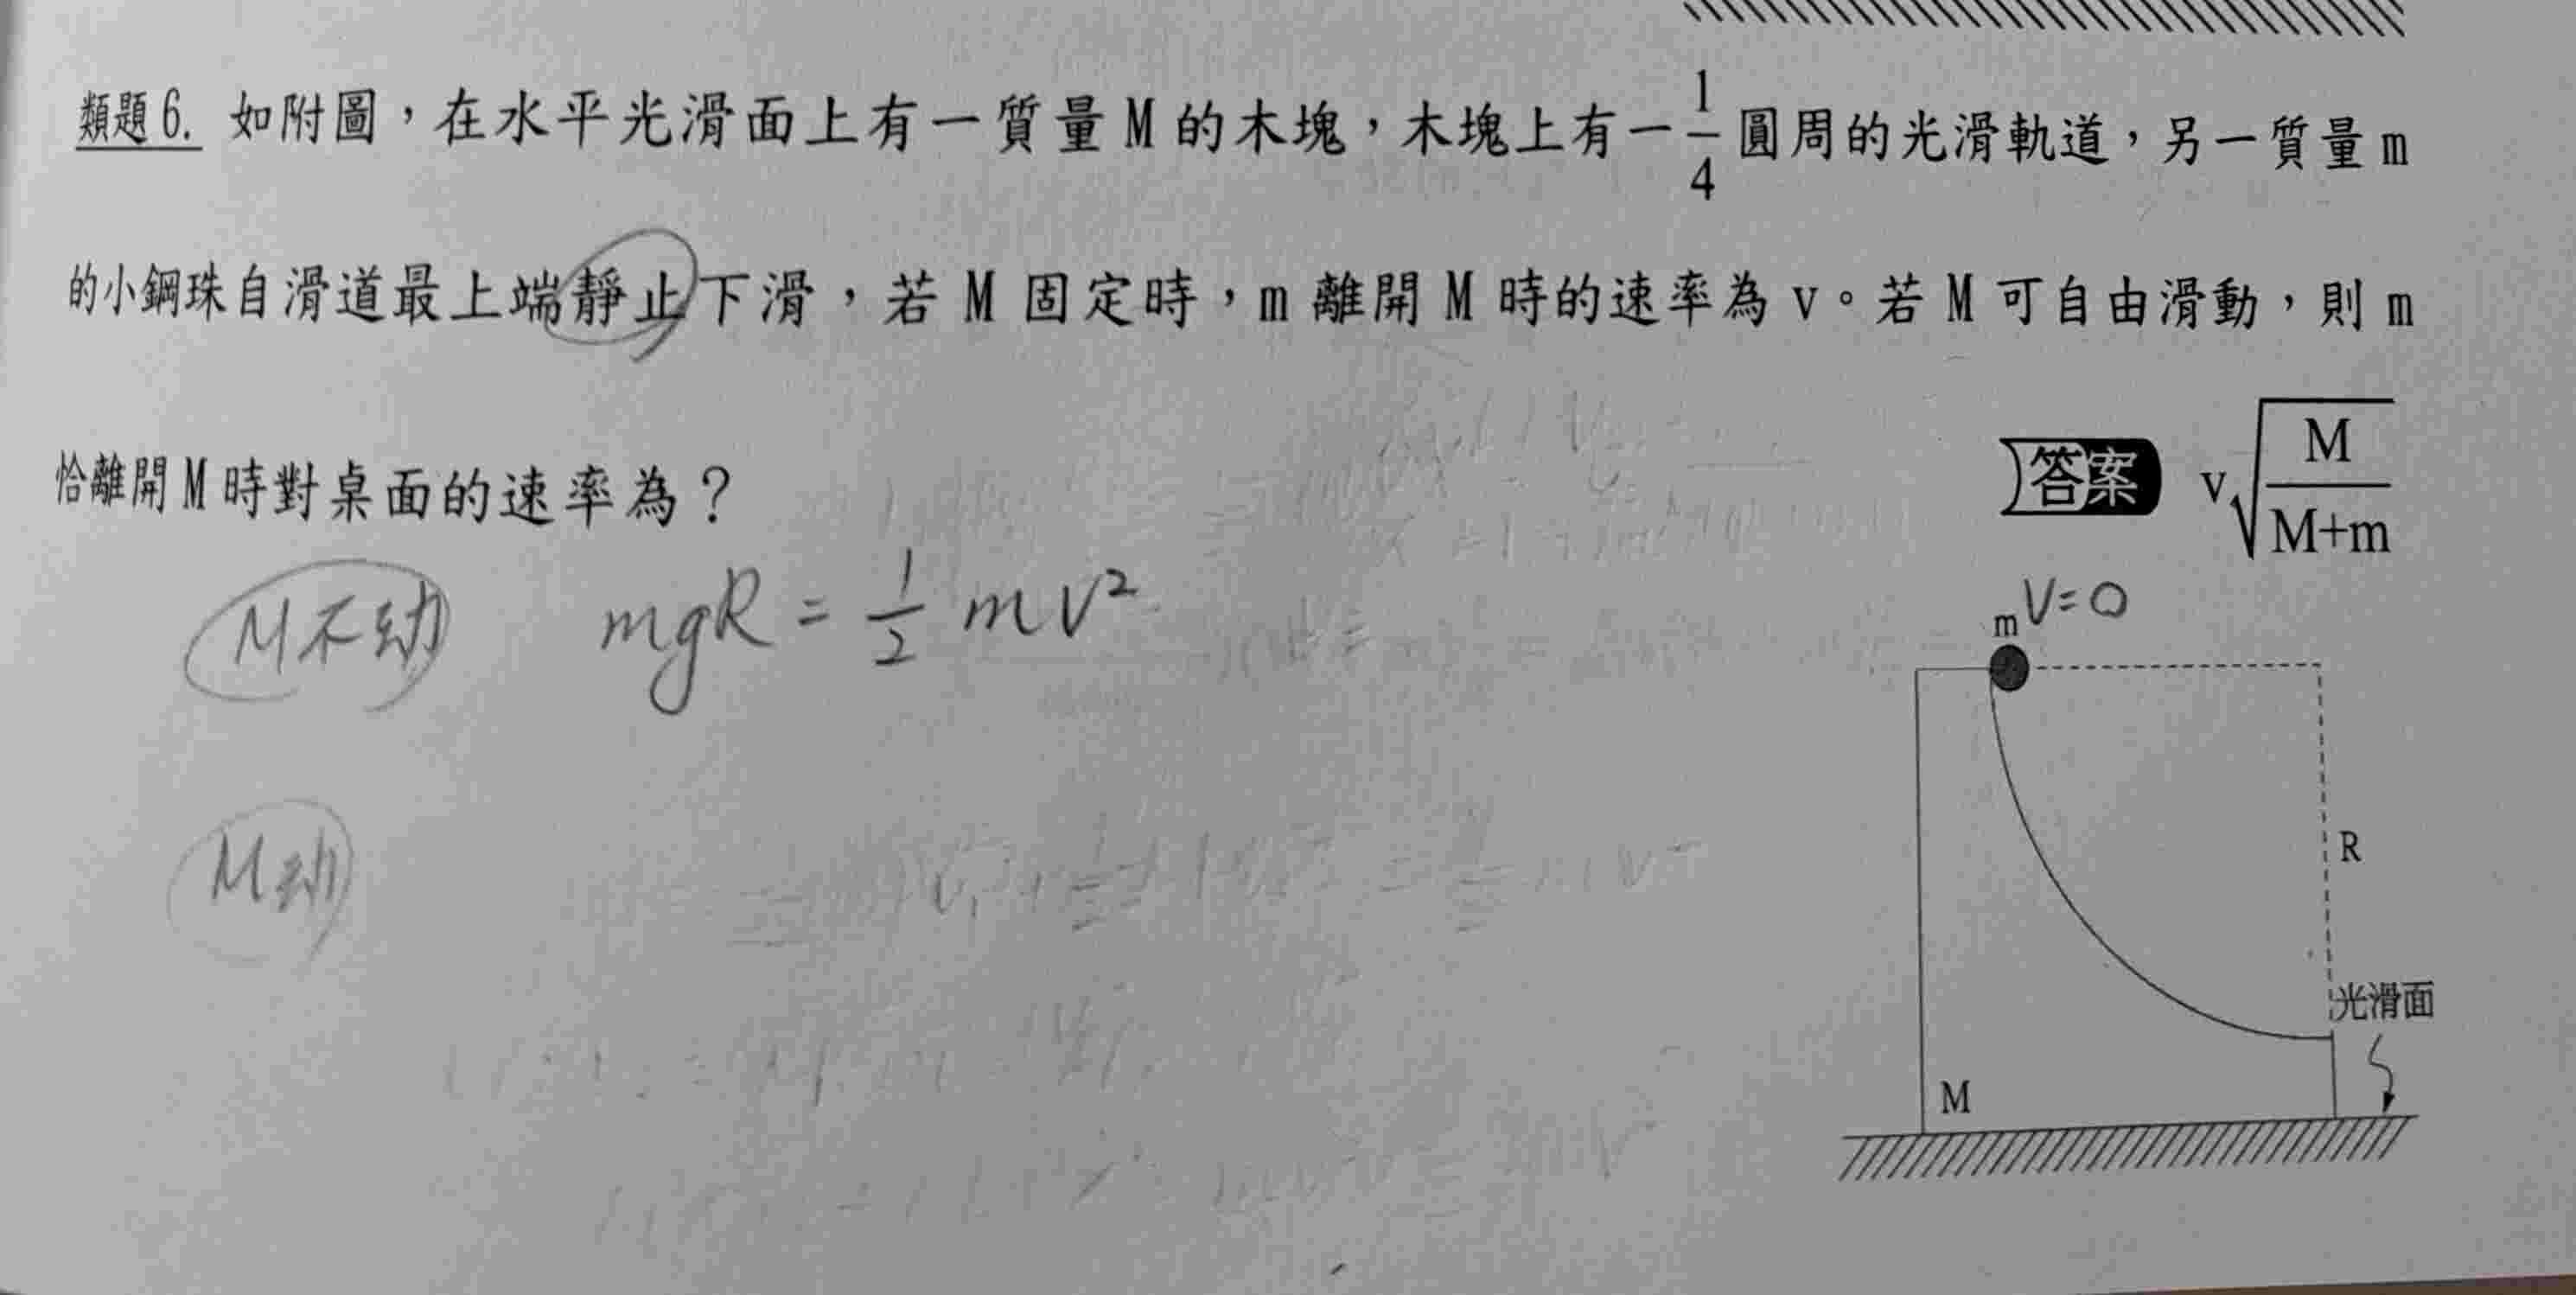 類題6. 如附圖，在水平光滑面上有一質量M的木塊，木塊上有一1/4圓周的光滑軌道，另一質量m
的小鋼珠自滑道最上端靜止下滑，若M固定時，m離開M時的速率為v。若M可自由滑動，則m
恰離開M時對桌面的速率為？
答案 v√(M/(M+m))
M不动 mgR = 1/2 mv²
V=0
m
M动
R
光滑面
M